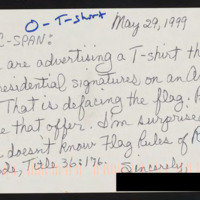 O - T-shirt
May 29, 1999
C-SPAN:
are advertising a T-shirt th
residential signatures on an A
That is defacing the flag.
e that offer. I'm surprise
doesn't know Flag Rules of
de, Title 36:176.
Sincerely,